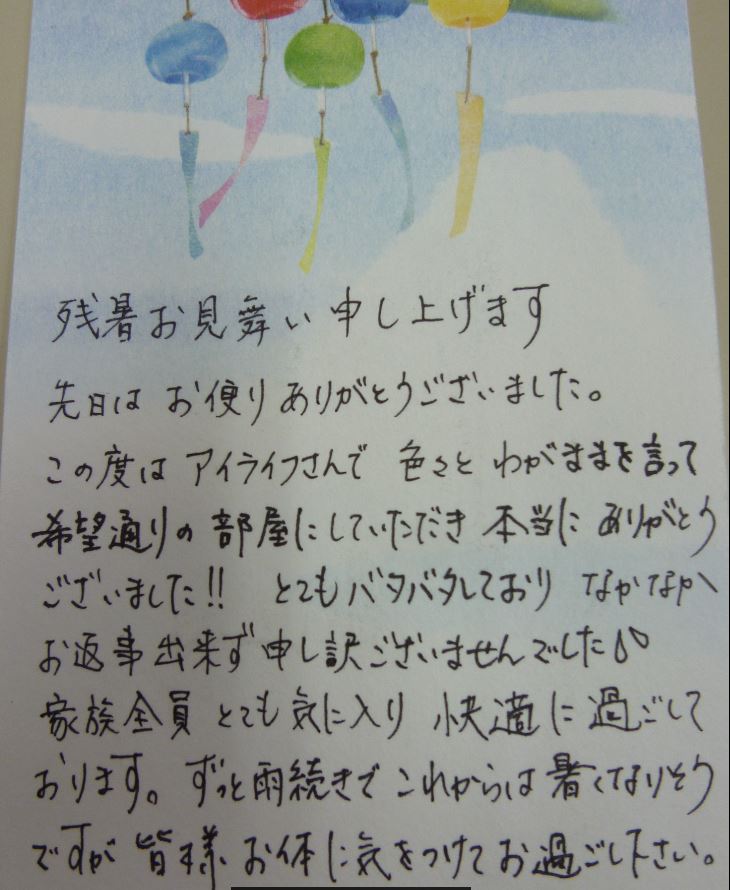 残暑お見舞い申し上げます
先日はお便りありがとうございました。
この度はアイライフさんで色々とわがままを言って
希望通りの部屋にしていただき本当にありがとう
ございました!!とてもバタバタしておりなかなか
お返事出来ず申し訳ございませんでした
家族全員とても気に入り快適に過ごして
おります。ずっと雨続きでこれからは暑くなりそう
ですが皆様、お体に気をつけてお過ごし下さい。